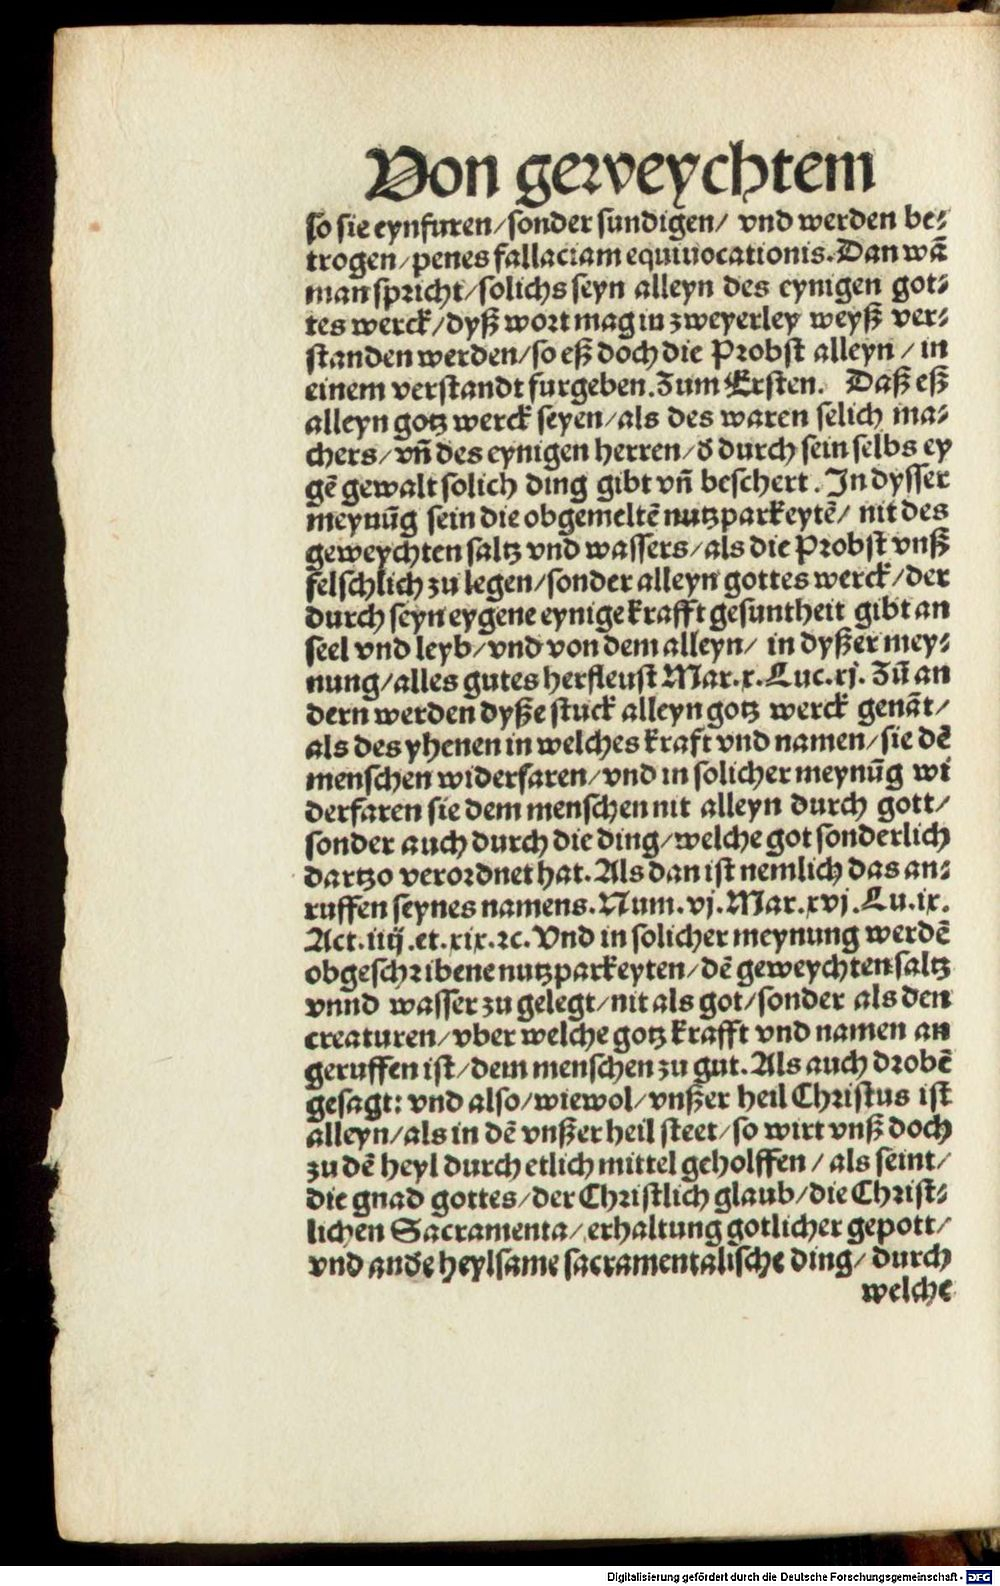 Von geweychtem
so sie eynfuren/sonder sundigen/ vnd werden be⸗
trogen/penes fallaciam equiuocationis. Dan wā
man spricht/solichs seyn alleyn des eynigen got⸗
tes werck/dyß wort mag in zweyerley weyß ver⸗
standen werden/so eß doch die Probst alleyn / in
einem verstandt furgeben. Zum Ersten. Daß eß
alleyn gotz werck seyen/als des waren selich ma⸗
chers/vñ des eynigen herren/ď durch sein selbs ey
gē gewalt solich ding gibt vñ beschert. In dysser
meynūg sein die obgemeltē nutzparkeytē/ nit des
geweychten saltz vnd wassers/als die Probst vnß
felschlich zu legen/sonder alleyn gottes werck/der
durch seyn eygene eynige krafft gesuntheit gibt an
seel vnd leyb/vnd von dem alleyn/ in dyßer mey⸗
nung/alles gutes herfleust Mar.x. Luc.xj. Zū an
dern werden dyße stuck alleyn gotz werck genāt/
als des yhenen in welches kraft vnd namen/sie dē
menschen widerfaren/vnd in solicher meynūg wi
derfaren sie dem menschen nit alleyn durch gott/
sonder auch durch die ding/welche got sonderlich
dartzo verordnet hat. Als dan ist nemlich das an⸗
ruffen seynes namens. Num.vj. Mar.xvj. Lu.ix.
Act.iiij.et.xix.ꝛc. Vnd in solicher meynung werdē
obgeschribene nutzparkeyten/dē geweychten saltz
vnnd wasser zu gelegt/nit als got/sonder als den
creaturen/vber welche gotz krafft vnd namen an
geruffen ist/dem menschen zu gut. Als auch drobē
gesagt: vnd also/wiewol/vnßer heil Christus ist
alleyn/als in dē vnßer heil steet/so wirt vnß doch
zu dē heyl durch etlich mittel geholffen / als seint/
die gnad gottes/der Christlich glaub/die Christ⸗
lichen Sacramenta/erhaltung gotlicher gepott/
vnd anďe heylsame sacramentalische ding/ durch
welche
Digitalisierung gefördert durch die Deutsche Forschungsgemeinschaft - DFG